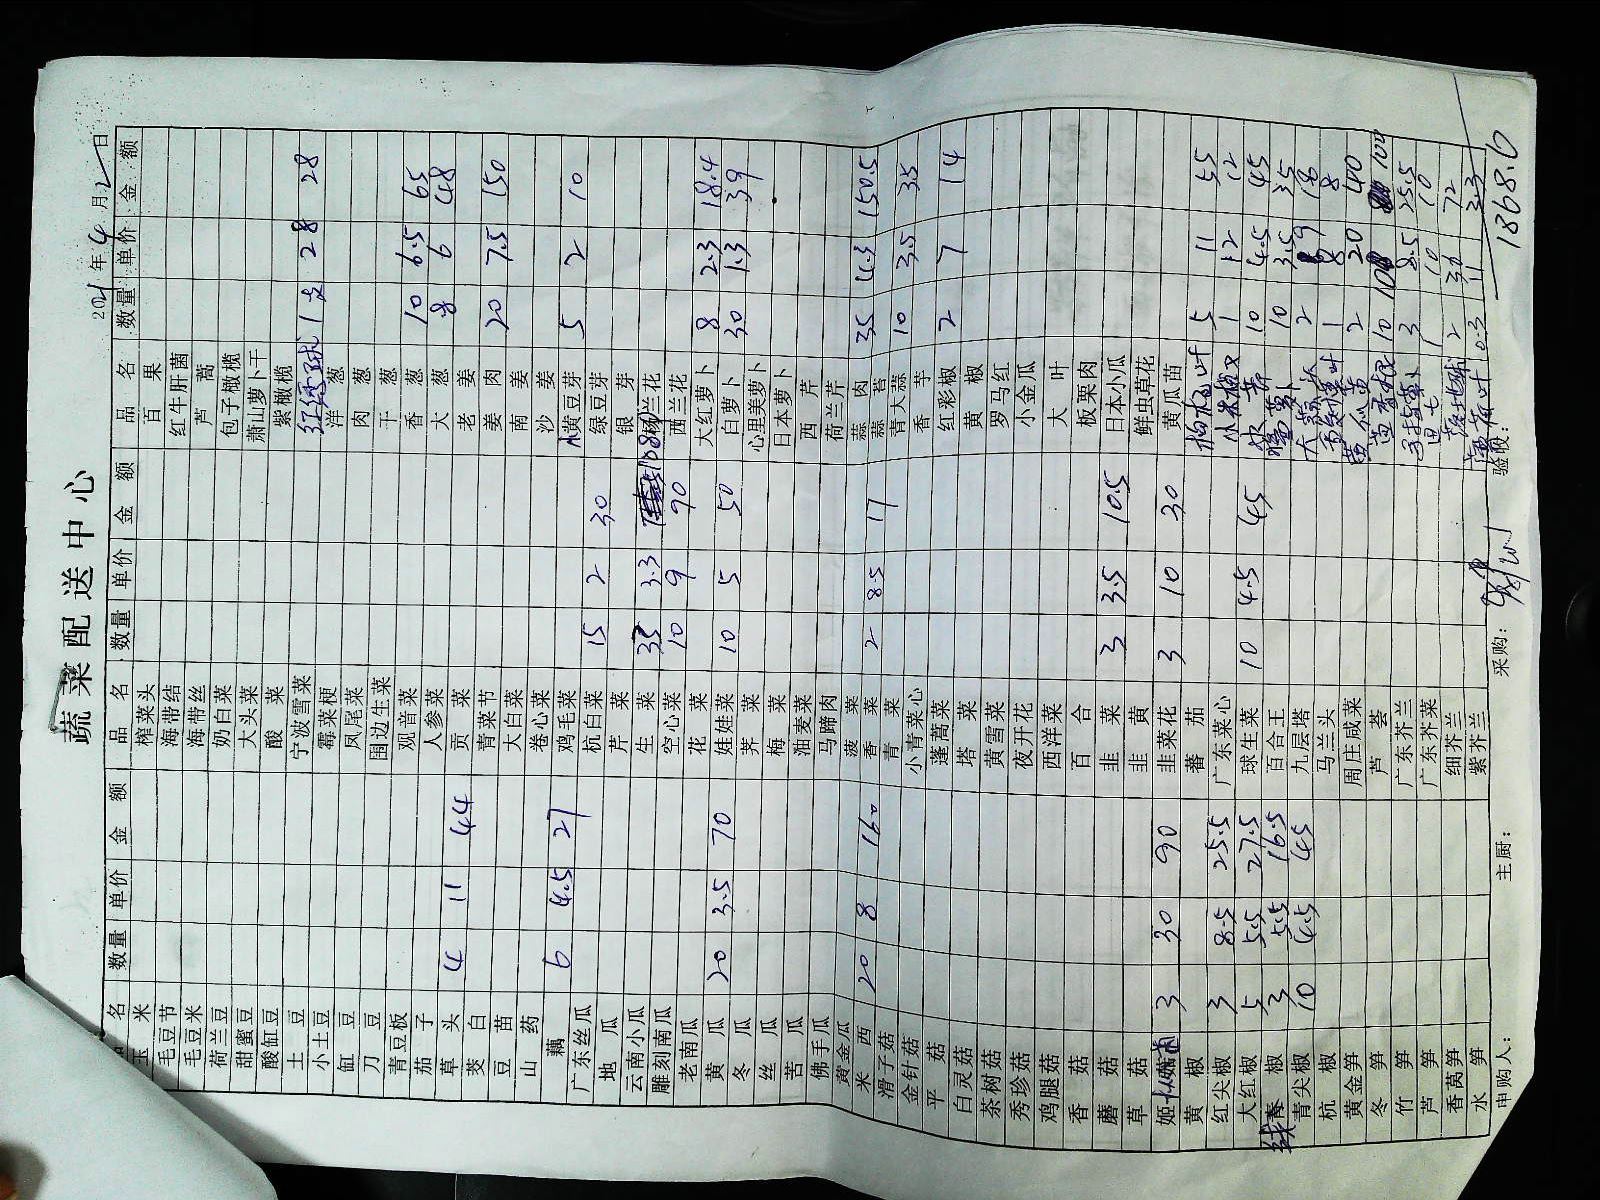 蔬菜配送中心
2021年4月2日
品名 数量 单价 金额 品名 数量 单价 金额 品名 数量 单价 金额
玉米 榨菜头 百果
毛豆节 海带结 红牛肝菌
毛豆米 海带丝 芦蒿
荷兰豆 奶白菜 包子橄榄
甜蜜豆 大头菜 萧山萝卜干
酸缸豆 酸菜 紫橄榄
土豆 宁波雪菜 28 28
小土豆 霉菜梗 洋葱
缸豆 凤尾菜 肉葱
刀豆 围边生菜 干葱
青豆板 观音菜 香葱 10 6.5 65
茄子 人参菜 大葱 8 6 48
草头 4 11 44 贡菜 老姜
茭白 青菜节 姜肉 20 7.5 150
豆苗 大白菜 南姜
山药 卷心菜 沙姜
藕 6 4.5 27 鸡毛菜 黄豆芽 5 2 10
广东丝瓜 杭白菜 15 2 30 绿豆芽
地瓜 芹菜 银芽
云南小瓜 生菜 35 3.3 108 兰花
雕刻南瓜 空心菜 10 9 90 西兰花
老南瓜 花菜 大红萝卜 8 2.3 18.4
黄瓜 20 3.5 70 娃娃菜 10 5 50 白萝卜 30 1.3 39
冬瓜 荠菜 心里美萝卜
丝瓜 梅菜 日本萝卜
苦瓜 油麦菜 西芹
佛手瓜 马蹄肉 荷兰芹
黄金瓜 菠菜 蒜肉 35 4.3 150.5
米西 20 8 160 香菜 2 8.5 17 蒜苔
滑子菇 青菜 青大蒜 10 3.5 35
金针菇 小青菜心 香芋
平菇 蓬蒿菜 红彩椒 2 7 14
白灵菇 塔菜 黄椒
茶树菇 黄雪菜 罗马红
秀珍菇 夜开花 小金瓜
鸡腿菇 西洋菜 大叶
香菇 百合 板栗肉
蘑菇 韭菜 3 3.5 10.5 日本小瓜
草菇 韭黄 鲜虫草花
姬菇 3 30 90 韭菜花 3 10 30 黄瓜苗
黄椒 蕃茄 5 11 55
红尖椒 3 8.5 25.5 广东菜心 1 12 12
大红椒 5 5.5 27.5 球生菜 10 4.5 45 10 4.5 45
青椒 3 5.5 16.5 百合王 10 3.5 35
青尖椒 10 4.5 45 九层塔 2 9 18
杭椒 马兰头 1 8 8
黄金笋 周庄咸菜 2 20 40
冬笋 芦荟 10 10 100
竹笋 广东芥兰 手指萝卜 3 8.5 25.5
芦笋 广东芥菜 田七 1 10 10
香莴笋 细芥兰 2 72
水笋 紫芥兰 0.3 11 3.3
申购人： 主厨： 采购： 验收： 1868.6